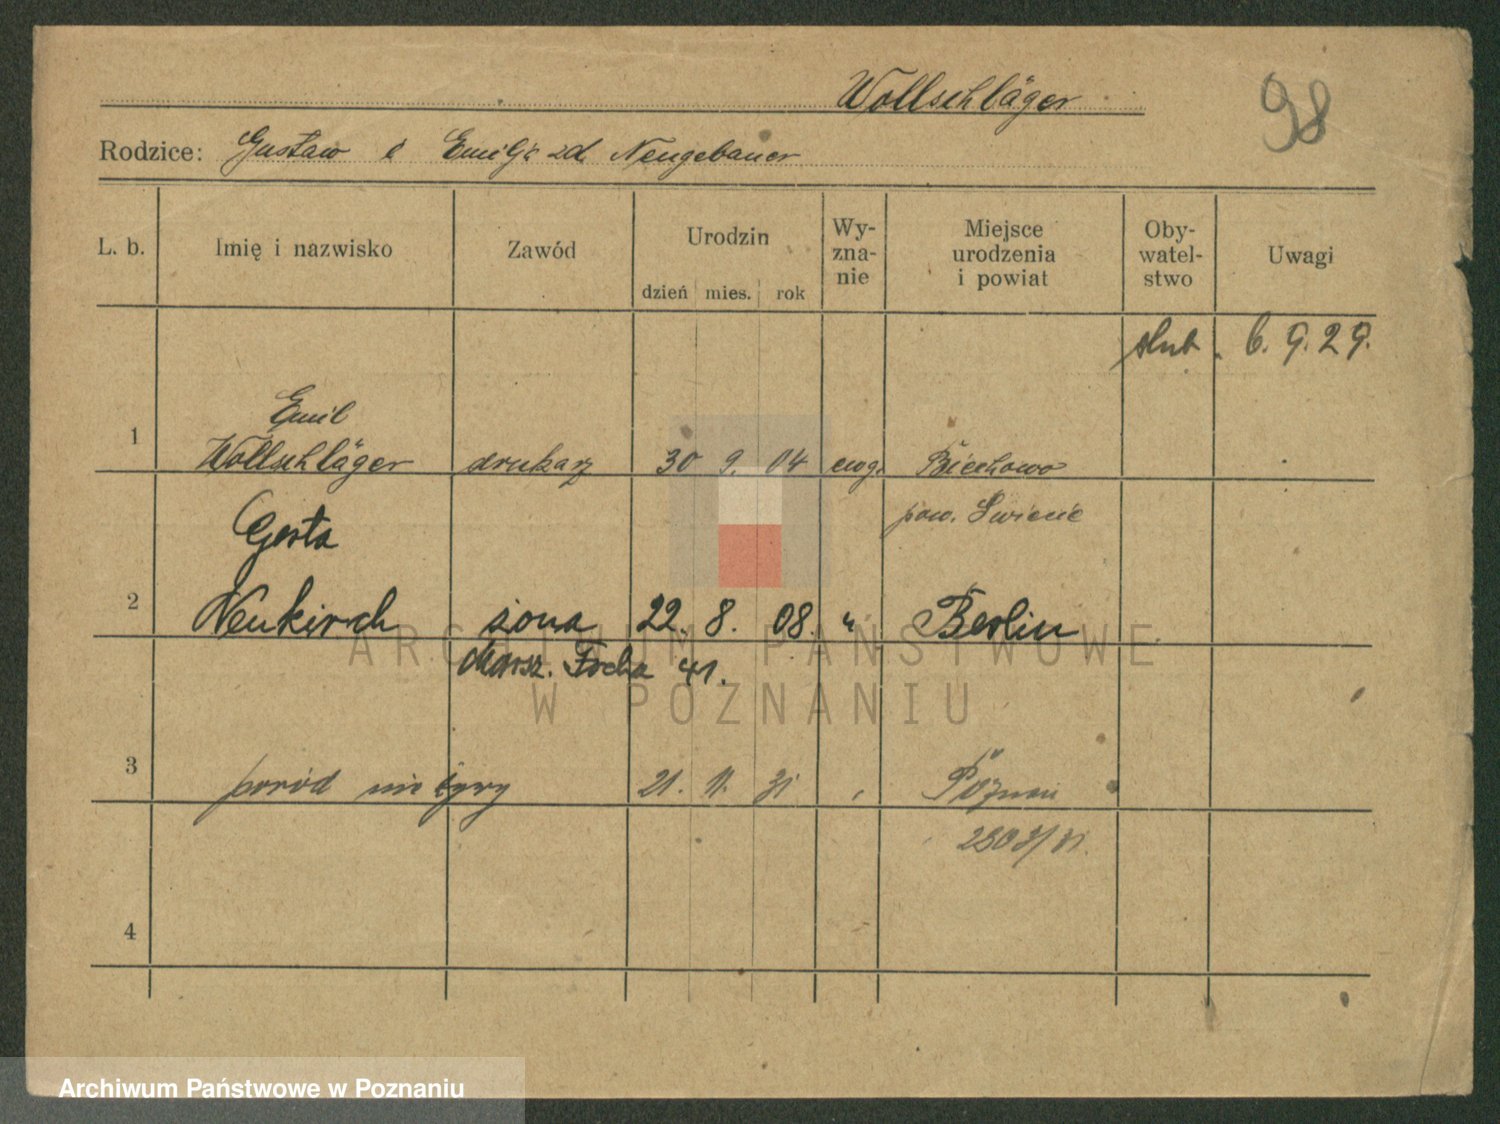 Wollschläger
98
Rodzice: Gustaw i Emilja zd. Neugebauer
L. b. Imię i nazwisko Zawód Urodzin Wy-zna-nie Miejsce urodzenia i powiat Oby-watel-stwo Uwagi
dzień mies. rok
ślub. 6. 9. 29.
Emil
1 Wollschläger drukarz 30 9. 04 ewg. Biechowo
pow. Świecie
Gerta
2 Neukirch żona 22. 8. 08. " Berlin
Marsz. Focha 41.
3 poród nieżywy 21. 11. 31 Poznań
4
ARCHIWUM PAŃSTWOWE
W POZNANIU
Archiwum Państwowe w Poznaniu